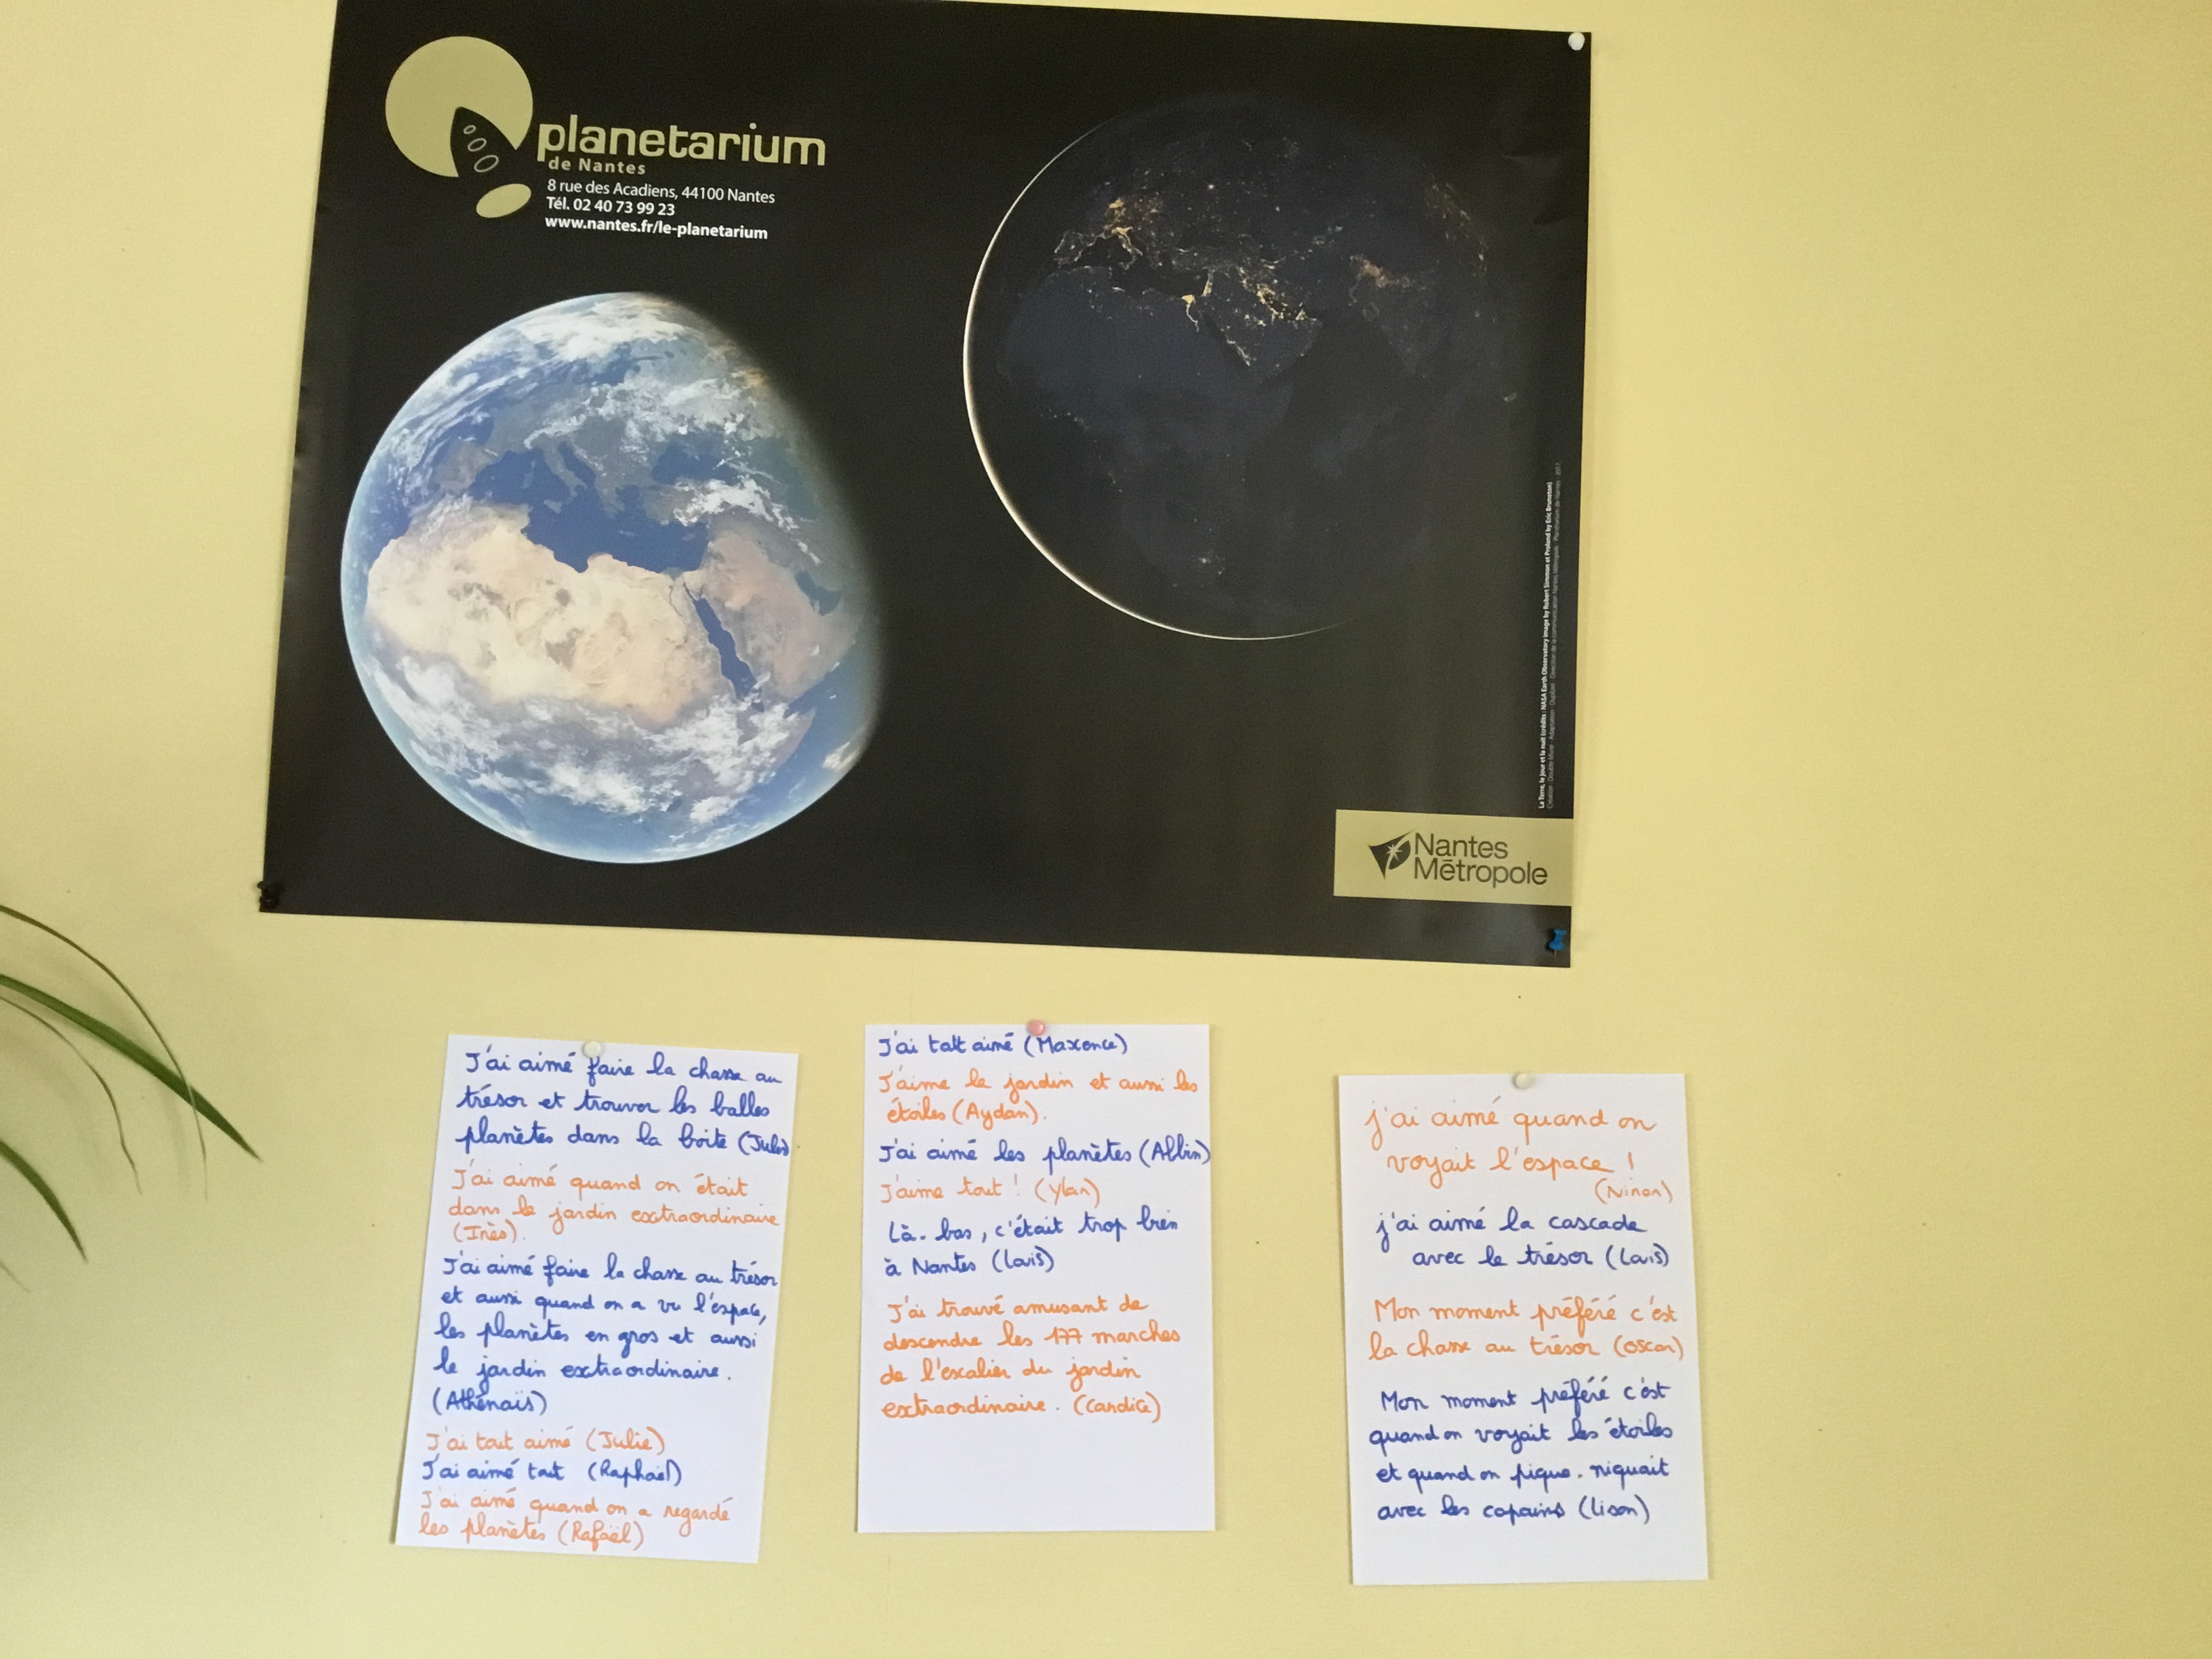 planetarium
de Nantes
8 rue des Acadiens, 44100 Nantes
Tél. 02 40 73 99 23
www.nantes.fr/le-planetarium
La Terre, le jour et la nuit (crédits : NASA Earth Observatory image by Robert Simmon et Proland by Eric Bruneton)
Nantes
Métropole
J'ai aimé faire la chasse au
trésor et trouver les balles
planètes dans la boite (Jules)
J'ai aimé quand on était
dans le jardin extraordinaire
(Inès).
J'ai aimé faire la chasse au trésor
et aussi quand on a vu l'espace,
les planètes en gros et aussi
le jardin extraordinaire.
(Athénaïs)
J'ai tout aimé (Julie)
J'ai aimé tout (Raphaël)
J'ai aimé quand on a regardé
les planètes (Rafaël)
J'ai tout aimé (Maxence)
J'aime le jardin et aussi les
étoiles (Aydan).
J'ai aimé les planètes (Albin)
J'aime tout ! (Ylan)
Là-bas, c'était trop bien
à Nantes (Loïs)
J'ai trouvé amusant de
descendre les 177 marches
de l'escalier du jardin
extraordinaire. (Candice)
j'ai aimé quand on
voyait l'espace !
(Ninon)
j'ai aimé la cascade
avec le trésor (Loïs)
Mon moment préféré c'est
la chasse au trésor (Oscar)
Mon moment préféré c'est
quand on voyait les étoiles
et quand on pique-niquait
avec les copains (Lison)